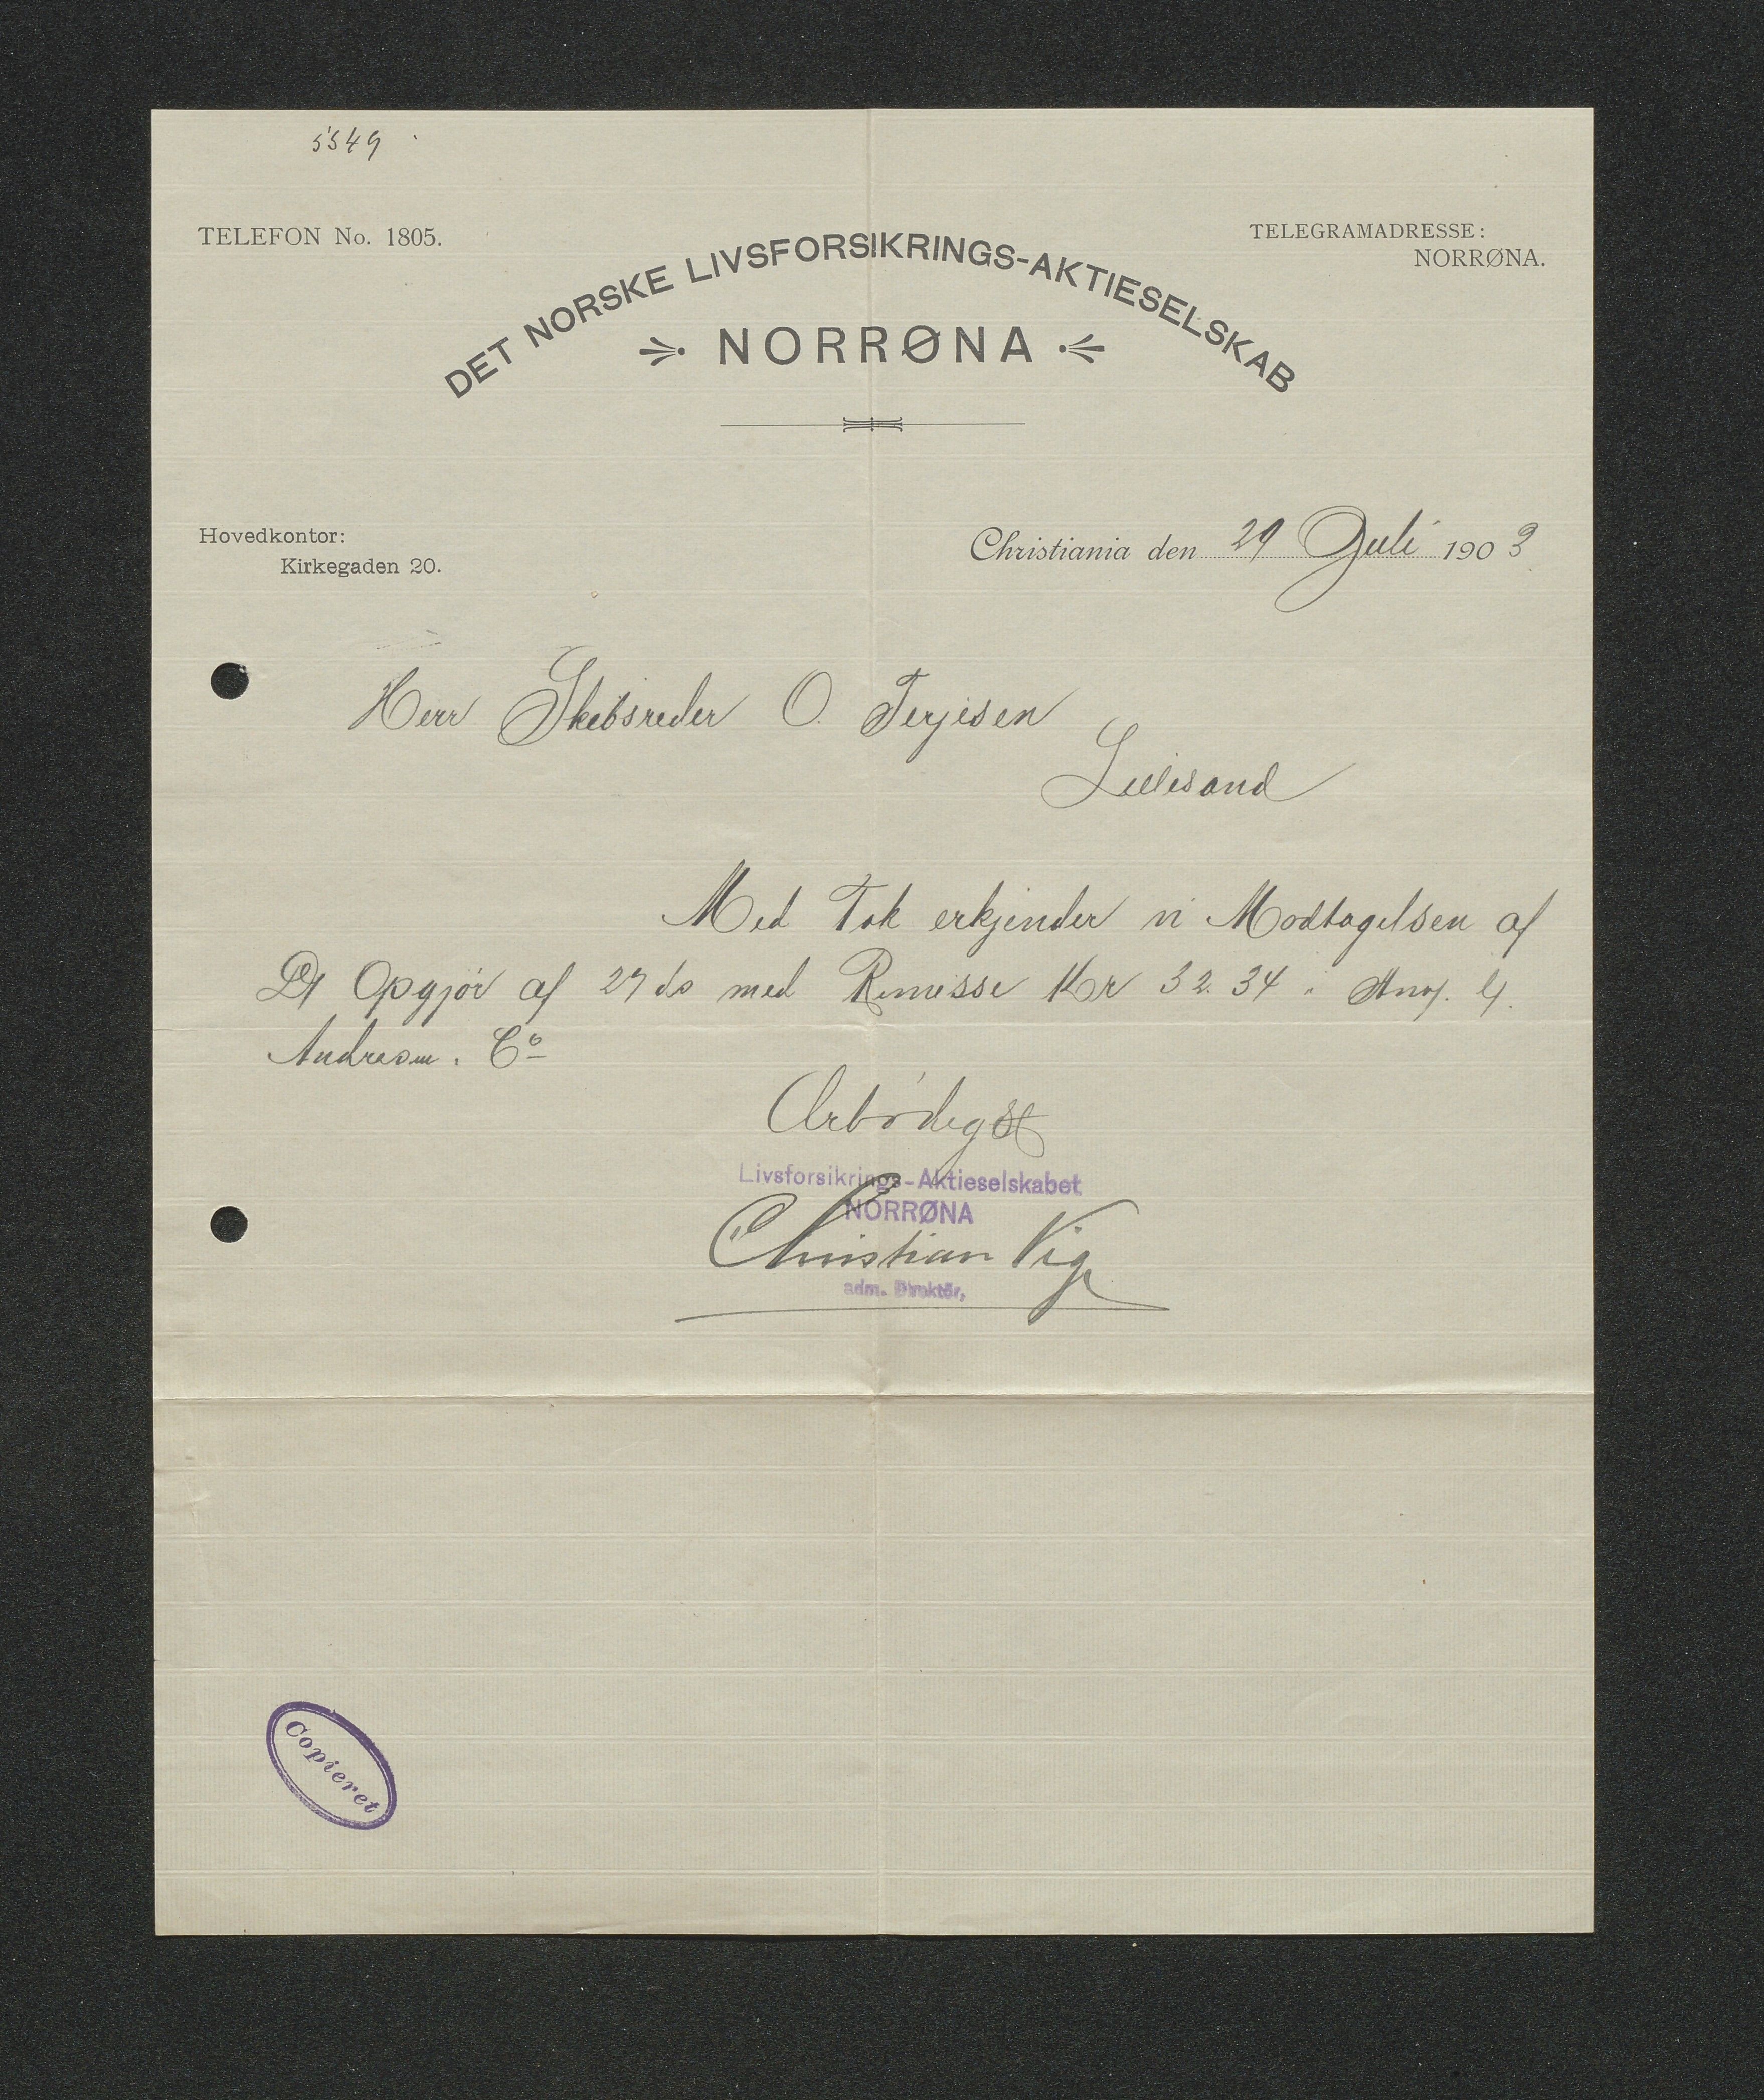 5549
TELEFON No. 1805.
TELEGRAMADRESSE:
NORRØNA.
DET NORSKE LIVSFORSIKRINGS-AKTIESELSKAB
NORRØNA
Hovedkontor:
Kirkegaden 20.
Christiania den 29 Juli 1903
Herr Skibsreder O. Terjesen
Lillesand
Med Tak erkjender vi Modtagelsen af
Opgjør af 27 ds med Remisse Kr 32.34
Andresen. Co
Ærbødigst
Livsforsikrings-Aktieselskabet
NORRØNA
Christian Vig
adm. Direktör,
Copieret